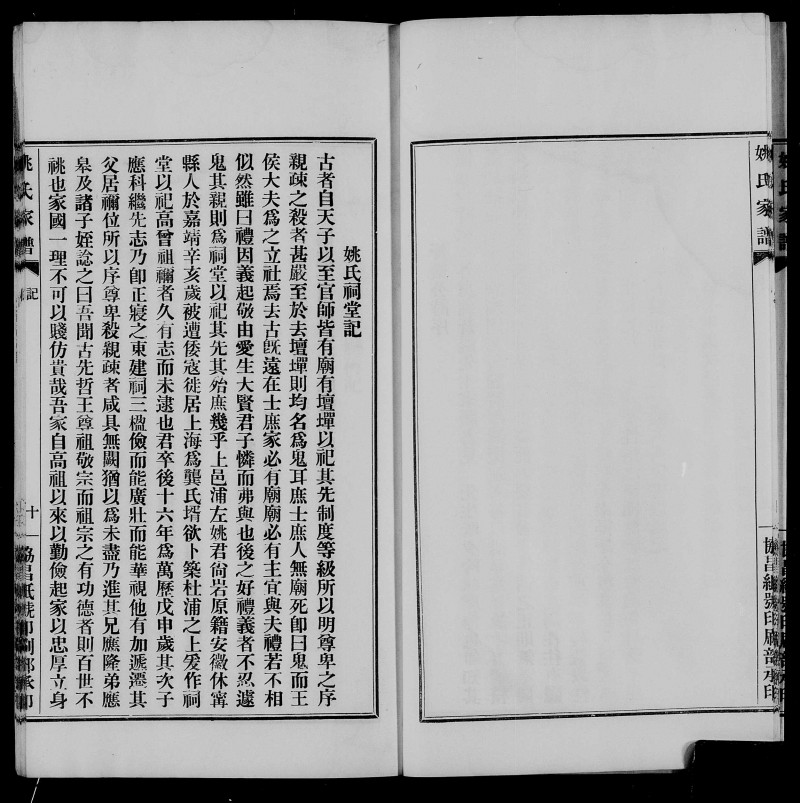 姚氏家譜
姚氏祠堂記
古者自天子以至官師皆有廟有壇墠以祀其先制度等級所以明尊卑之序
親疎之殺者甚嚴至於去壇墠則均名爲鬼耳庶士庶人無廟死卽曰鬼而王
侯大夫爲之立社焉去古旣遠在士庶家必有廟廟必有主宜與夫禮若不相
似然雖曰禮因義起敬由愛生大賢君子憐而弗與也後之好禮義者不忍遽
鬼其親則爲祠堂以祀其先其殆庶幾乎上邑浦左姚君尙岩原籍安徽休甯
縣人於嘉靖辛亥歲被遭倭寇徙居上海爲龔氏壻欲卜築杜浦之上爰作祠
堂以祀高曾祖禰者久有志而未逮也君卒後十六年爲萬歷戊申歲其次子
應科繼先志乃卽正寢之東建祠三楹儉而能廣壯而能華視他有加遞遷其
父居禰位所以序尊卑殺親疎者咸具無闕猶以爲未盡乃進其兄應隆弟應
皋及諸子姪諗之曰吾聞古先哲王尊祖敬宗而祖宗之有功德者則百世不
祧也家國一理不可以賤仿貴哉吾家自高祖以來以勤儉起家以忠厚立身
姚氏家譜
記
十